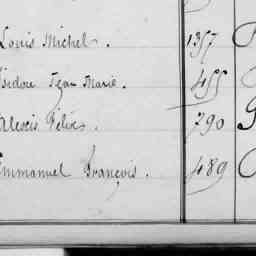 Louis Michel. 1357
Isidore Jean Marie. 455
Alexis Félix. 790
Emmanuel François. 489